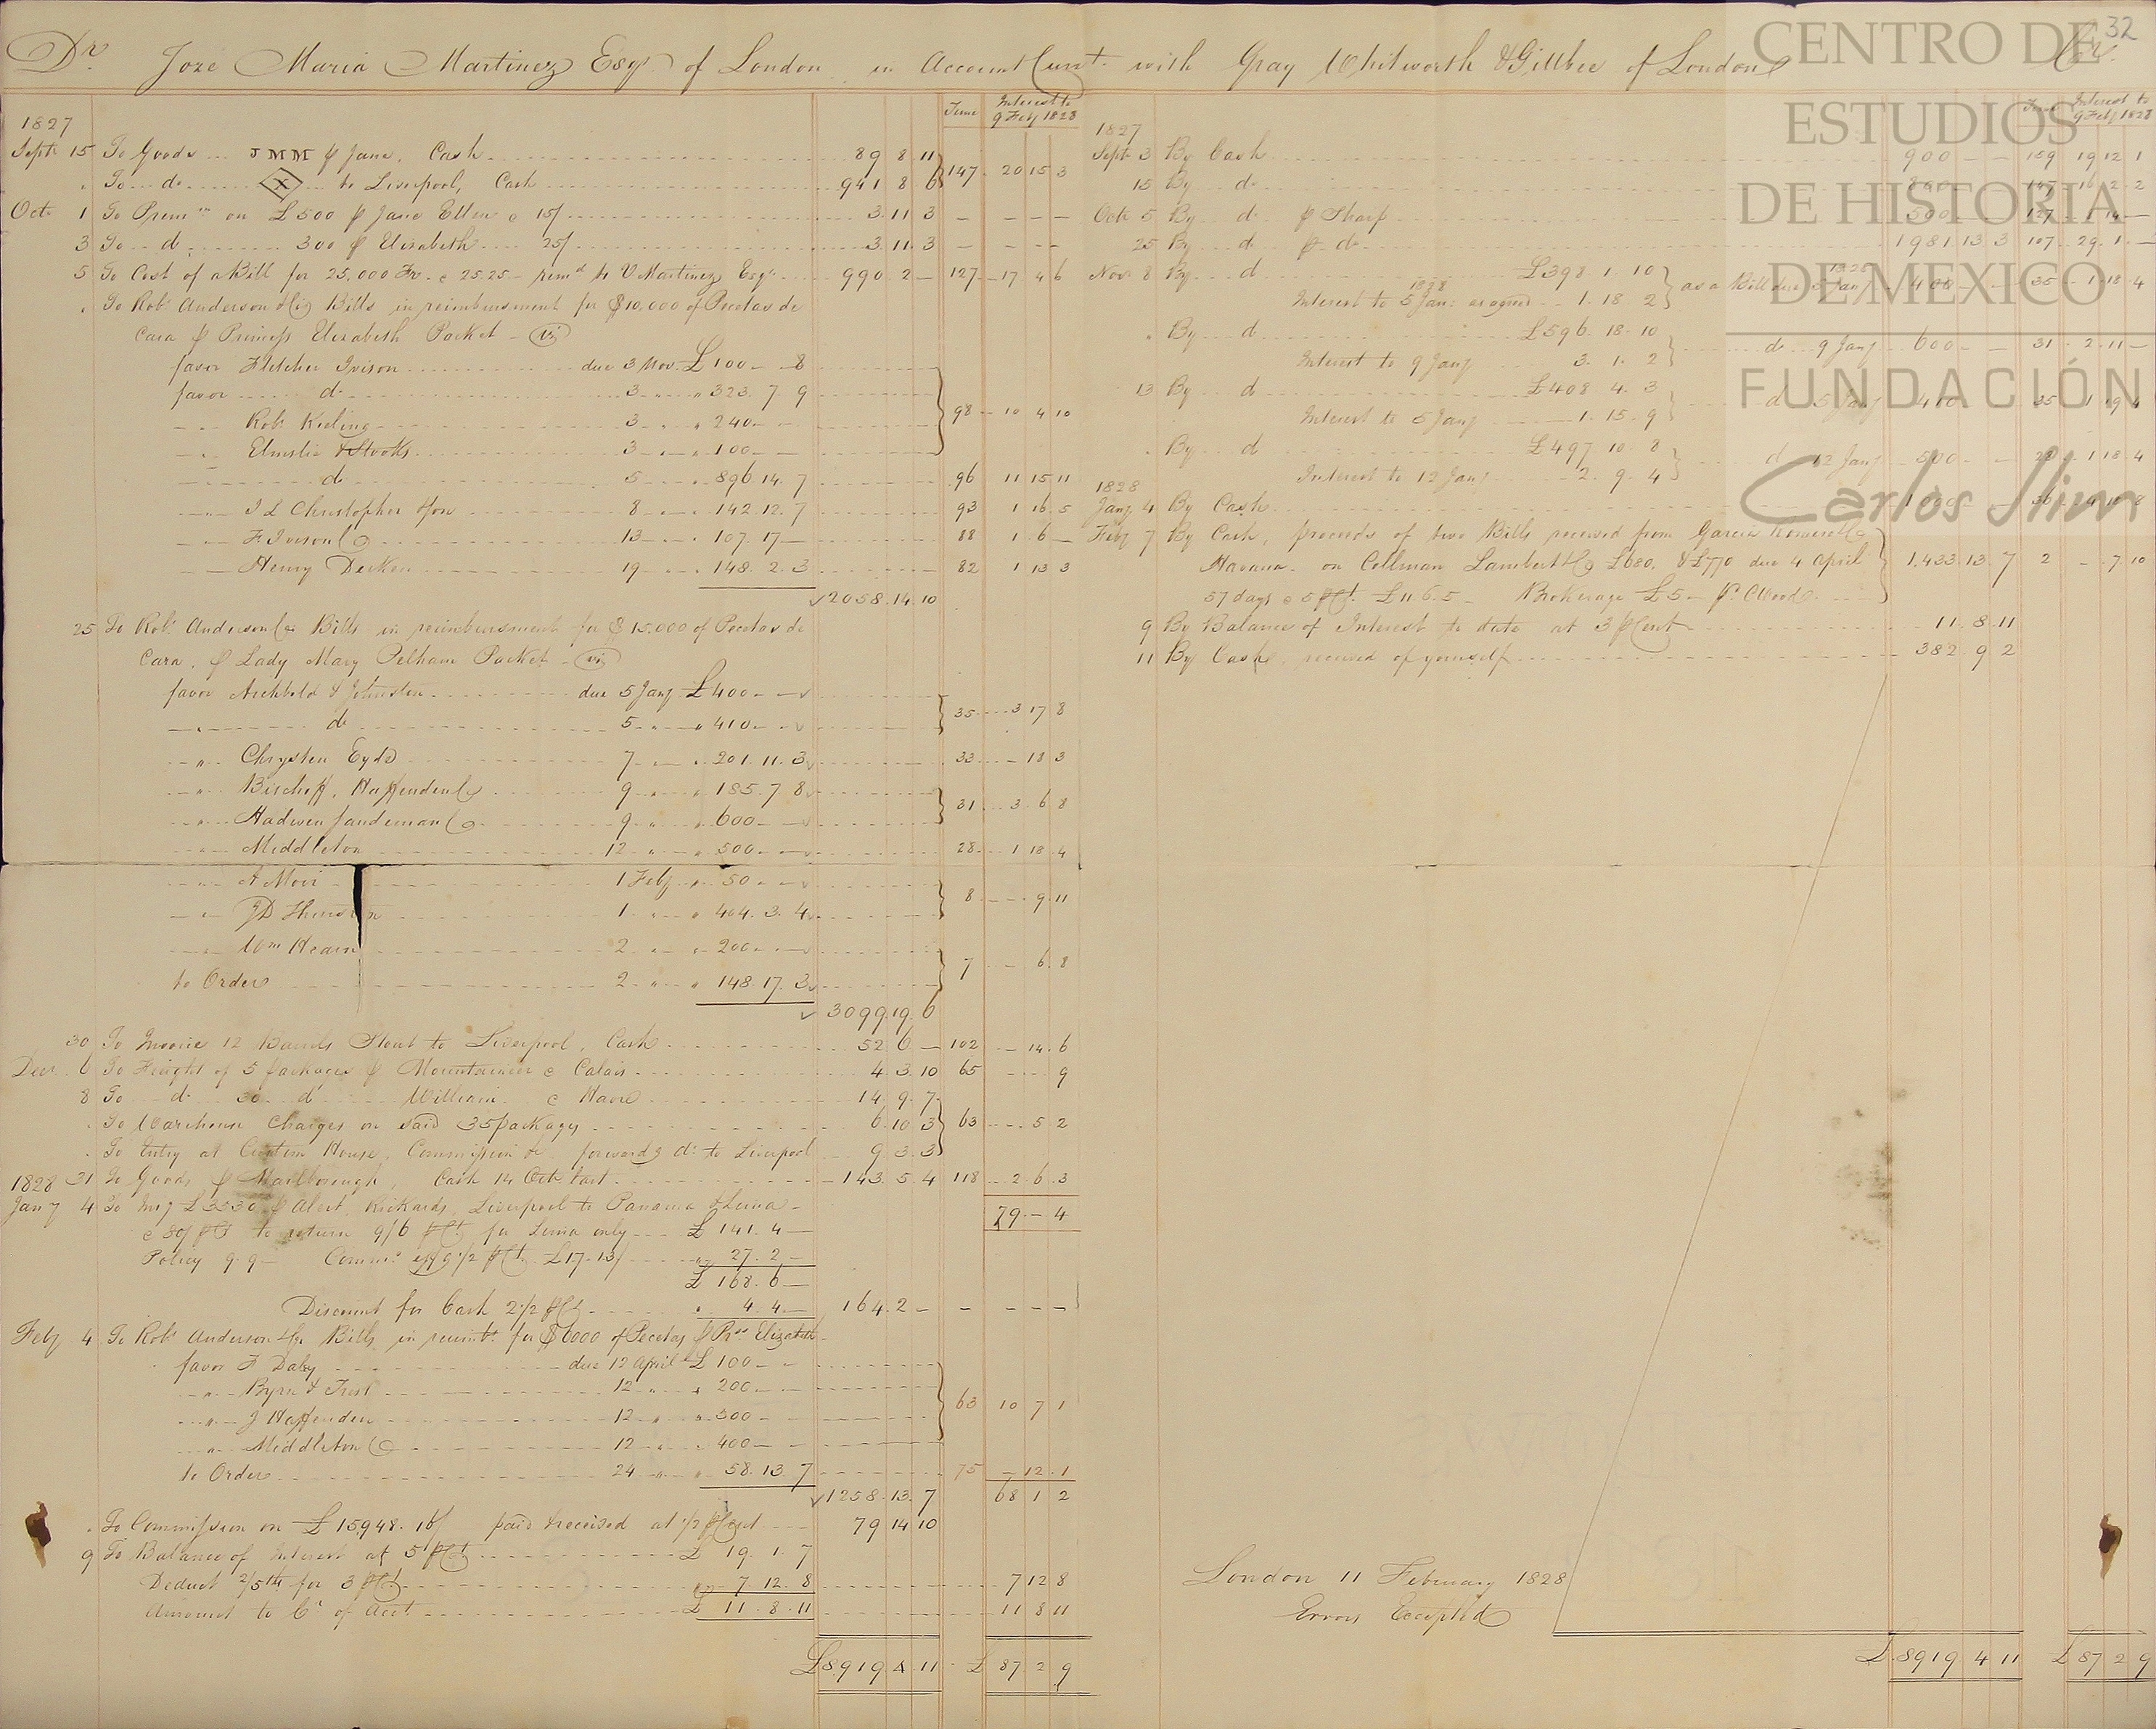 32
Dr. Joze Maria Martinez Esqr. of London in Account Curt. with Gray Whitworth & Gillbee of London Cr.
Time Interest to 9 Feby 1828
1827
Sept. 15 To Goods JMM p Jane, Cash 89 8 11
" To do X to Liverpool, Cash 941 8 6 147 20 15 3
Oct. 1 To Prem. on £500 p Jane Ellen @ 15/ 3.11.3 — — — —
3 To do 300 p Elizabeth 25/ 3.11.3 — — — —
5 To Cost of a Bill for 25,000 Fr. @ 25.25 remd. to V Martinez Esqr. 990 2 — 127 17 4 6
" To Robt. Anderson & Co Bills in reimbursment for $10,000 of Pecetas de
Cara p Princess Elizabeth Packet viz
favor Fletcher Ivison due 3 Nov. £100 — 8
favor do 3 " " 323. 7 9
" Robt. Keeling 3 " " 240 — — 98 10 4 10
" Elmslie & Stooks 3 " " 100 — —
" do 5 " 896. 14. 7 96 11 15 11
" J L Christopher & Son 8 " 142. 12. 7 93 1 16 5
" F. Ivison & Co 13 " 107. 17 — 88 1 6 —
" Henry Decken 19 " 148. 2. 3 82 1 13 3
2058. 14. 10
25 To Robt. Anderson & Co Bills in reimbursment for $15,000 of Pecetas de
Cara, p Lady Mary Pelham Packet viz
favor Archbold & Johnston due 5 Jany £400 — —
" do 5 " " 410 — — 35 3 17 8
" Chrysten Eyde 7 " " 201. 11. 3 33 — 18 3
" Bischoff, Haffenden & Co 9 " " 185. 7 8
" Hadwen Sandeman & Co 9 " " 600 — — 31 3 6 8
" Middleton 12 " " 500 — — 28 1 18 4
" A Moir 1 Feby " 50 — —
" JD Thurston 1 " " 404. 3. 4 8 — 9 11
" Wm Hearn 2 " " 200 — —
to Order 2 " " 148. 17. 3 7 — 6 8
3099 19 6
30 To Invoice 12 Barrels Stout to Liverpool, Cash 52 6 — 102 — 14 6
Decr. 6 To Freight of 5 packages p Mountaineer @ Calais 4 3 10 65 — — 9
8 To do 30 do William @ Havre 14 9 7
" To Warehouse Charges on said 35 packages 6 10 3 63 — 5 2
" To Entry at Custom House, Commission &c forwardg do to Liverpool 9 3 3
31 To Goods p Marlborough, Cash 14 Octr. last 143 5 4 118 2 6 3
1828
Jany 4 To Insy £3530 p Alert, Rickards, Liverpool to Panama & Lima
@ 80/ p Ct to return 9/6 p Ct. for Lima only £ 141. 4 — 79 — 4
Policy 9. 9 — Commn. effg 1/2 p Ct. £17. 13/ " 27. 2 —
£ 168. 6 —
Discount for Cash 2 1/2 p Ct " 4. 4 — 164 2 — — — — —
Feby 4 To Robt. Anderson & Co Bills in reimbt. for $6000 of Pecetas p Prss Elizabeth
favor F Daly due 12 April £ 100 — —
" Byrn & Trist 12 " " 200 — —
" J Haffenden 12 " " 500 — 63 10 7 1
" Middleton & Co 12 " " 400 — —
to Order 24 " " 58. 13 7 75 — 12 1
1258. 13. 7 68 1 2
" To Commission on £15948. 16/ paid & received at 1/2 p Cent 79 14 10
9 To Balance of Interest at 5 p Ct £ 19. 1. 7
Deduct 2/5ths for 3 p Ct 7 12. 8 7 12 8
Amount to Cr. of Acct. £ 11. 8. 11 11 8 11
£8919 4 11 £ 87 2 9
Time Interest to 9 Feby 1828
1827
Sept. 3 By Cash 900 — — 159 19 12 1
15 By do 147 16 2 2
Oct. 5 By do p Sharp 500 127
25 By do p do 1981 13 3 107 29 1 —
Nov. 8 By do £398 1. 10
Interest to 5 Jany 1828 as agreed 1. 18 2 as a Bill due 5 Jany 1828 400 — — 35 1 18 4
" By do £596. 18. 10
Interest to 9 Jany 3. 1. 2 do 9 Jany 600 — — 31 2 11 —
13 By do £408 4. 3
Interest to 5 Jany 1. 15. 9 do 5 Jany 410 35 1 19 4
" By do £497 10 8
Interest to 12 Jany 2. 9. 4 do 12 Jany 500 — — 28 1 18 4
1828
Jany 4 By Cash 1000 — — 36
Feby 7 By Cash, proceeds of two Bills received from Garcia Romero & Co
Havana on Collman Lambert & Co £680, & £770 due 4 April 1,433 13 7 2 — 7 10
57 days @ 5 p Ct. £11. 6. 5 Brokerage £5 — p. CWood
9 By Balance of Interest to date at 3 p Cent 11. 8. 11
11 By Cash, received of yourself 382 9 2
London 11 February 1828
Errors Excepted
£ 8919 4 11 £ 87 2 9
CENTRO DE
ESTUDIOS
DE HISTORIA
DE MEXICO
FUNDACIÓN
Carlos Slim